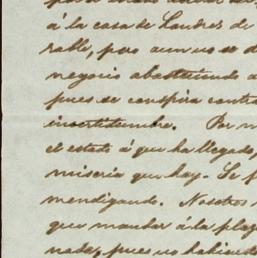 á la casa de Londres de
rable, pero aun no se d
negocio absteniendo
pues se conspira contra
incertidumbre. Por m
el estado á que ha llegado,
miseria que hay. Se p
mendigando. Nosotros
que mandar á la plaza
nada, pues no habiendo